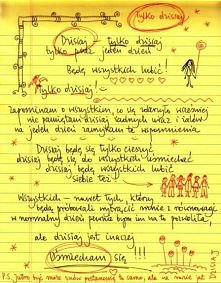 Tylko dzisiaj
Dzisiaj - tylko dzisiaj
tylko przez jeden dzień
Będę wszystkich lubić!
Tylko dzisiaj
Zapominam o wszystkim, co się zdarzyło wcześniej
nie pamiętam dzisiaj żadnych uraz i żalów
na jeden dzień zamykam te wspomnienia
Dzisiaj będę się tylko cieszyć
dzisiaj będę się do wszystkich uśmiechać
dzisiaj będę wszystkich lubić
siebie też
Wszystkich - nawet tych, którzy
będą próbowali wytrącić mnie z równowagi
w normalny dzień pewnie bym im na to pozwoliła
ale dzisiaj jest inaczej
Uśmiecham się!!!
P.S. Jutro być może znów postanowię to samo, ale na razie jest
DZISIAJ